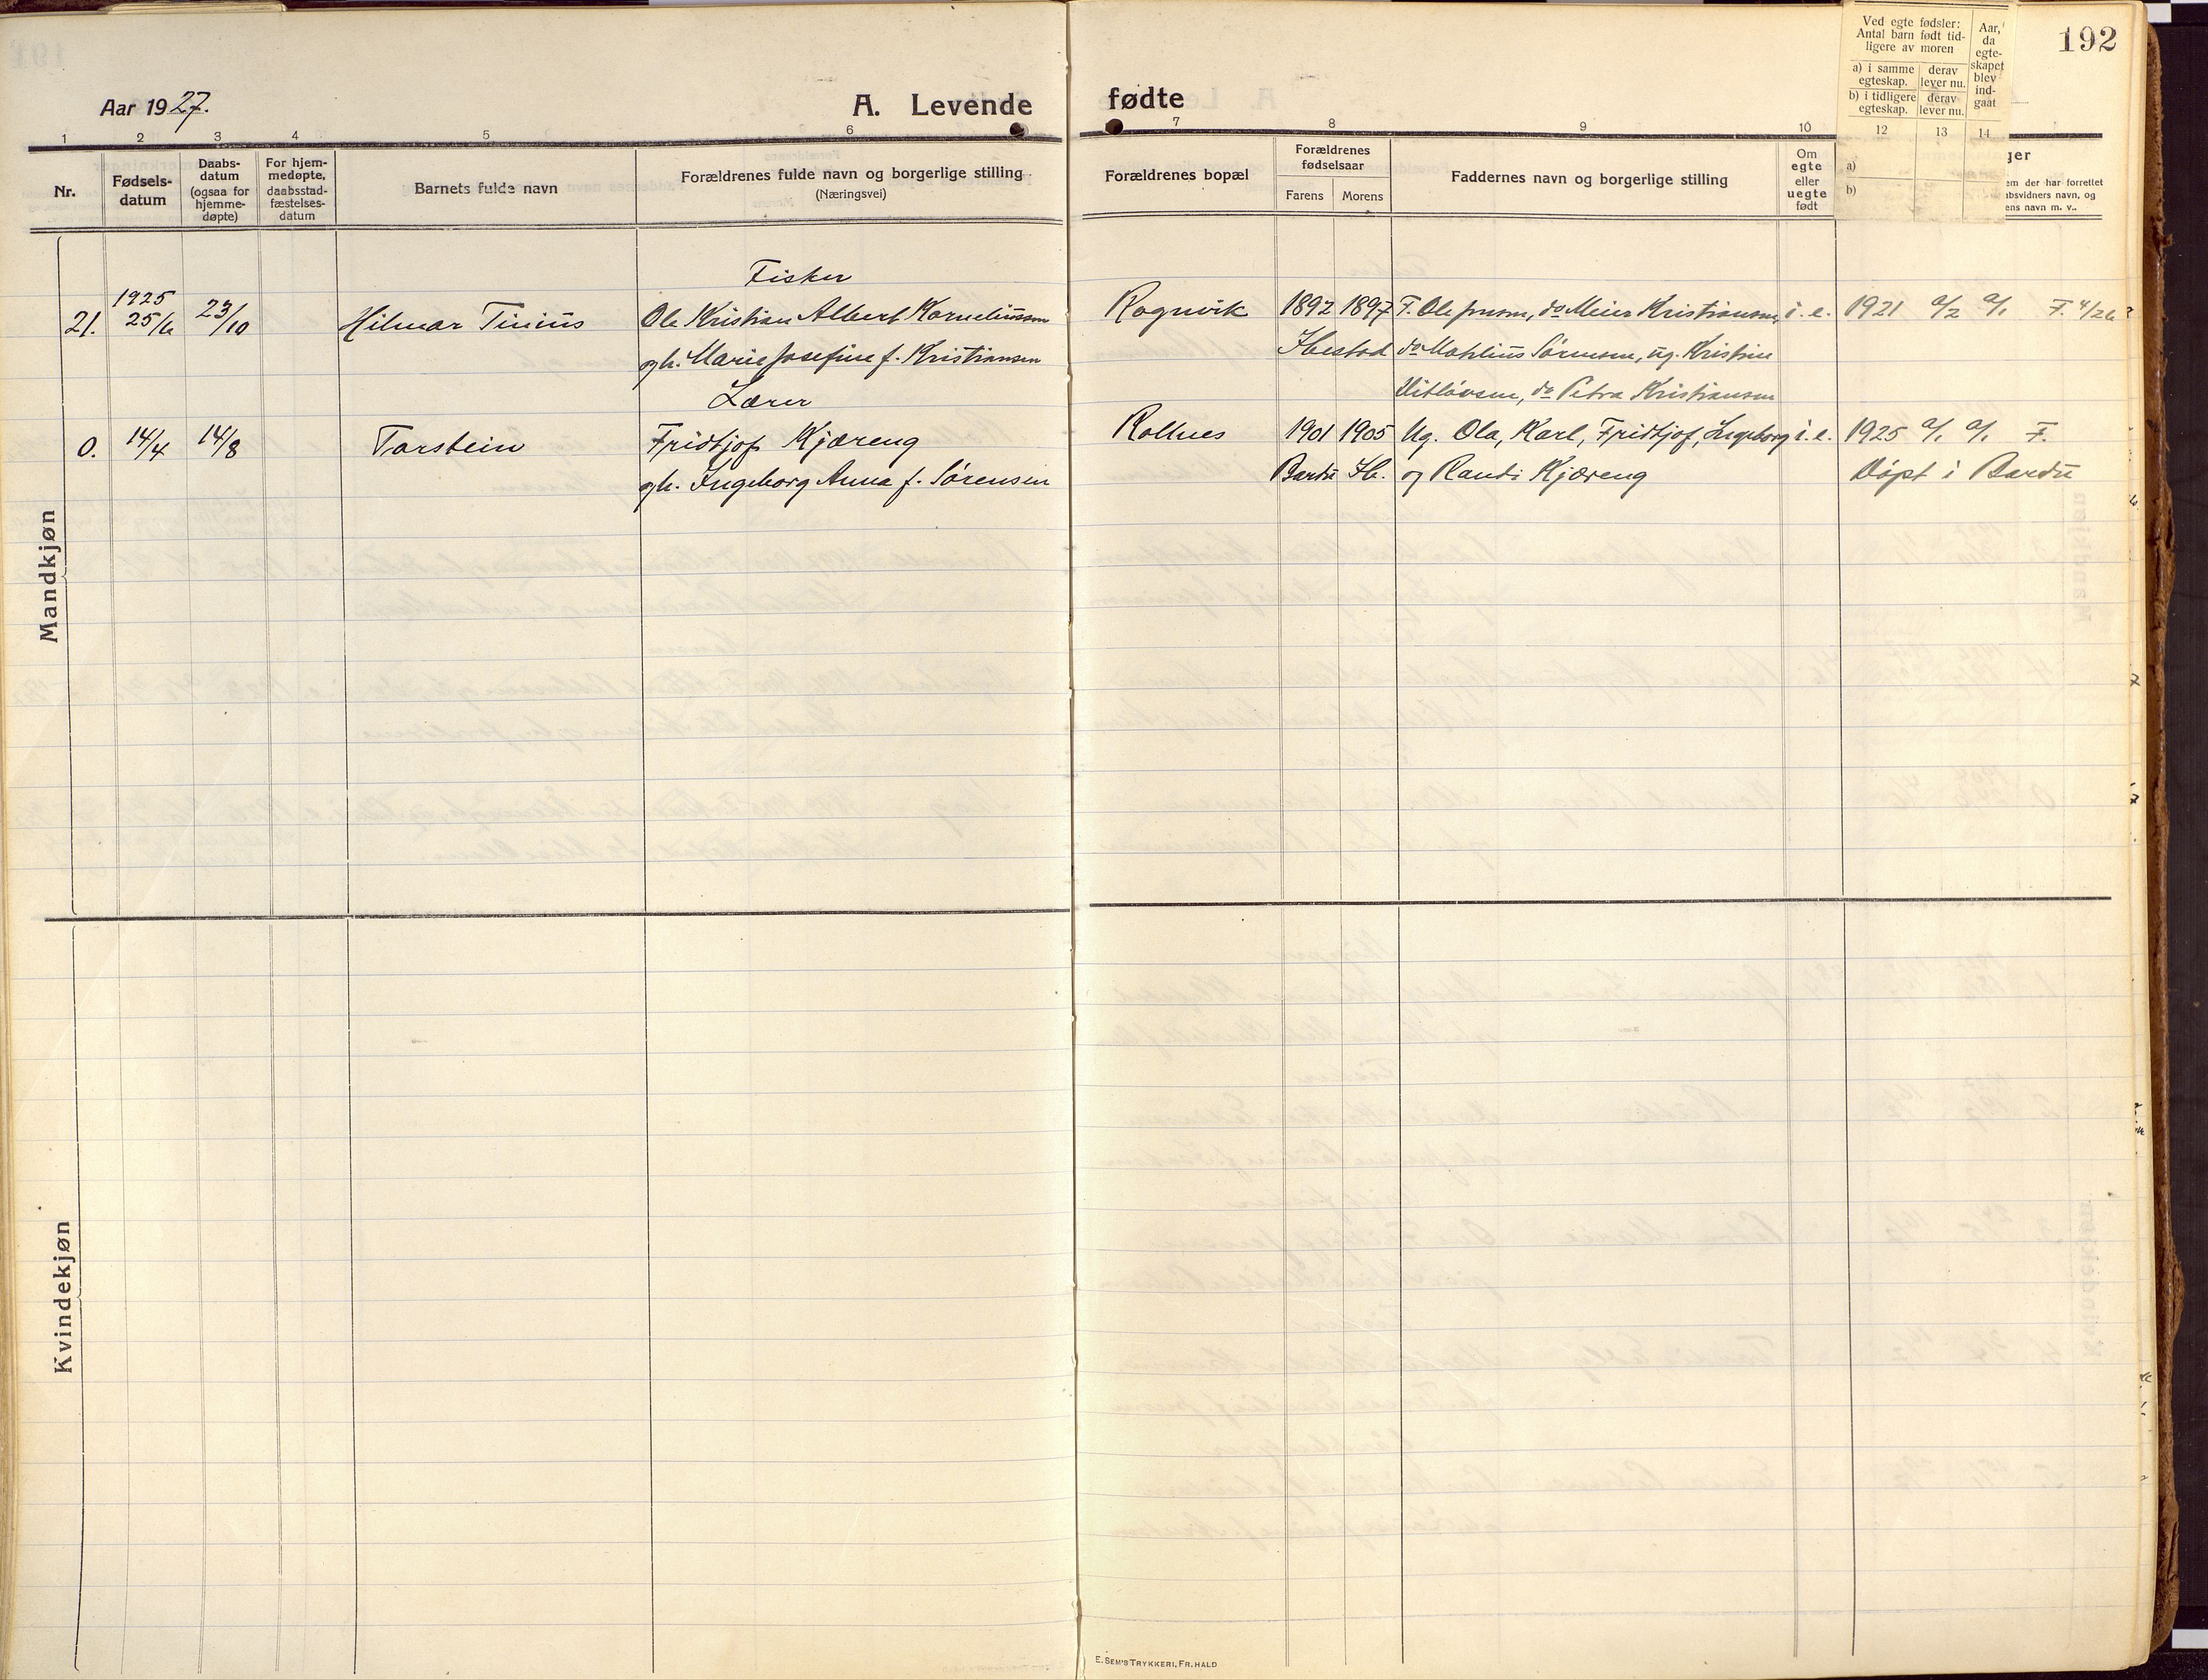 192
Aar 1927.
A. Levende
fødte
Ved egte fødsler:
Antal barn født tid-
ligere av moren
a) i samme egteskap.
derav lever nu.
b) i tidligere egteskap.
derav lever nu.
Aar, da egte-
skapet blev ind-
gaat
12 13 14
a)
b)
1 2 3 4 5 6 7 8 9 10
Nr.
Fødsels-
datum
Daabs-
datum
(ogsaa for
hjemme-
døpte)
For hjem-
medøpte,
daabsstad-
fæstelses-
datum
Barnets fulde navn
Forældrenes fulde navn og borgerlige stilling
(Næringsvei)
Forældrenes bopæl
Forældrenes
fødselsaar
Farens Morens
Faddernes navn og borgerlige stilling
Om
egte
eller
uegte
født
ger
em der har forrettet
absvidners navn, og
ens navn m. v..
Mandkjøn
Fisker
1925
21. 25/6 23/10 Hilmar Tinius Ole Kristian Albert Korneliussen Rognvik 1892 1897 F. Ole Jensen, do Meier Kristiansen, i. e. 1921 a/2 a/1 F. 4/26
gh. Marie Josefine f. Kristiansen Ibestad do Mathius Sørensen, ug. Kristine
Ditløvsen, do Petra Kristiansen
Lærer
0. 14/4 14/8 Torstein Fridtjof Kjæreng Rollnes 1901 1905 Ug. Ola, Karl, Fridtjof, Ingeborg i. e. 1925 a/1 a/1 F.
gh. Ingeborg Anna f. Sørensen Bardu Ib. og Randi Kjæreng Døpt i Bardu
Kvindekjøn
E. SEM'S TRYKKERI, FR.HALD